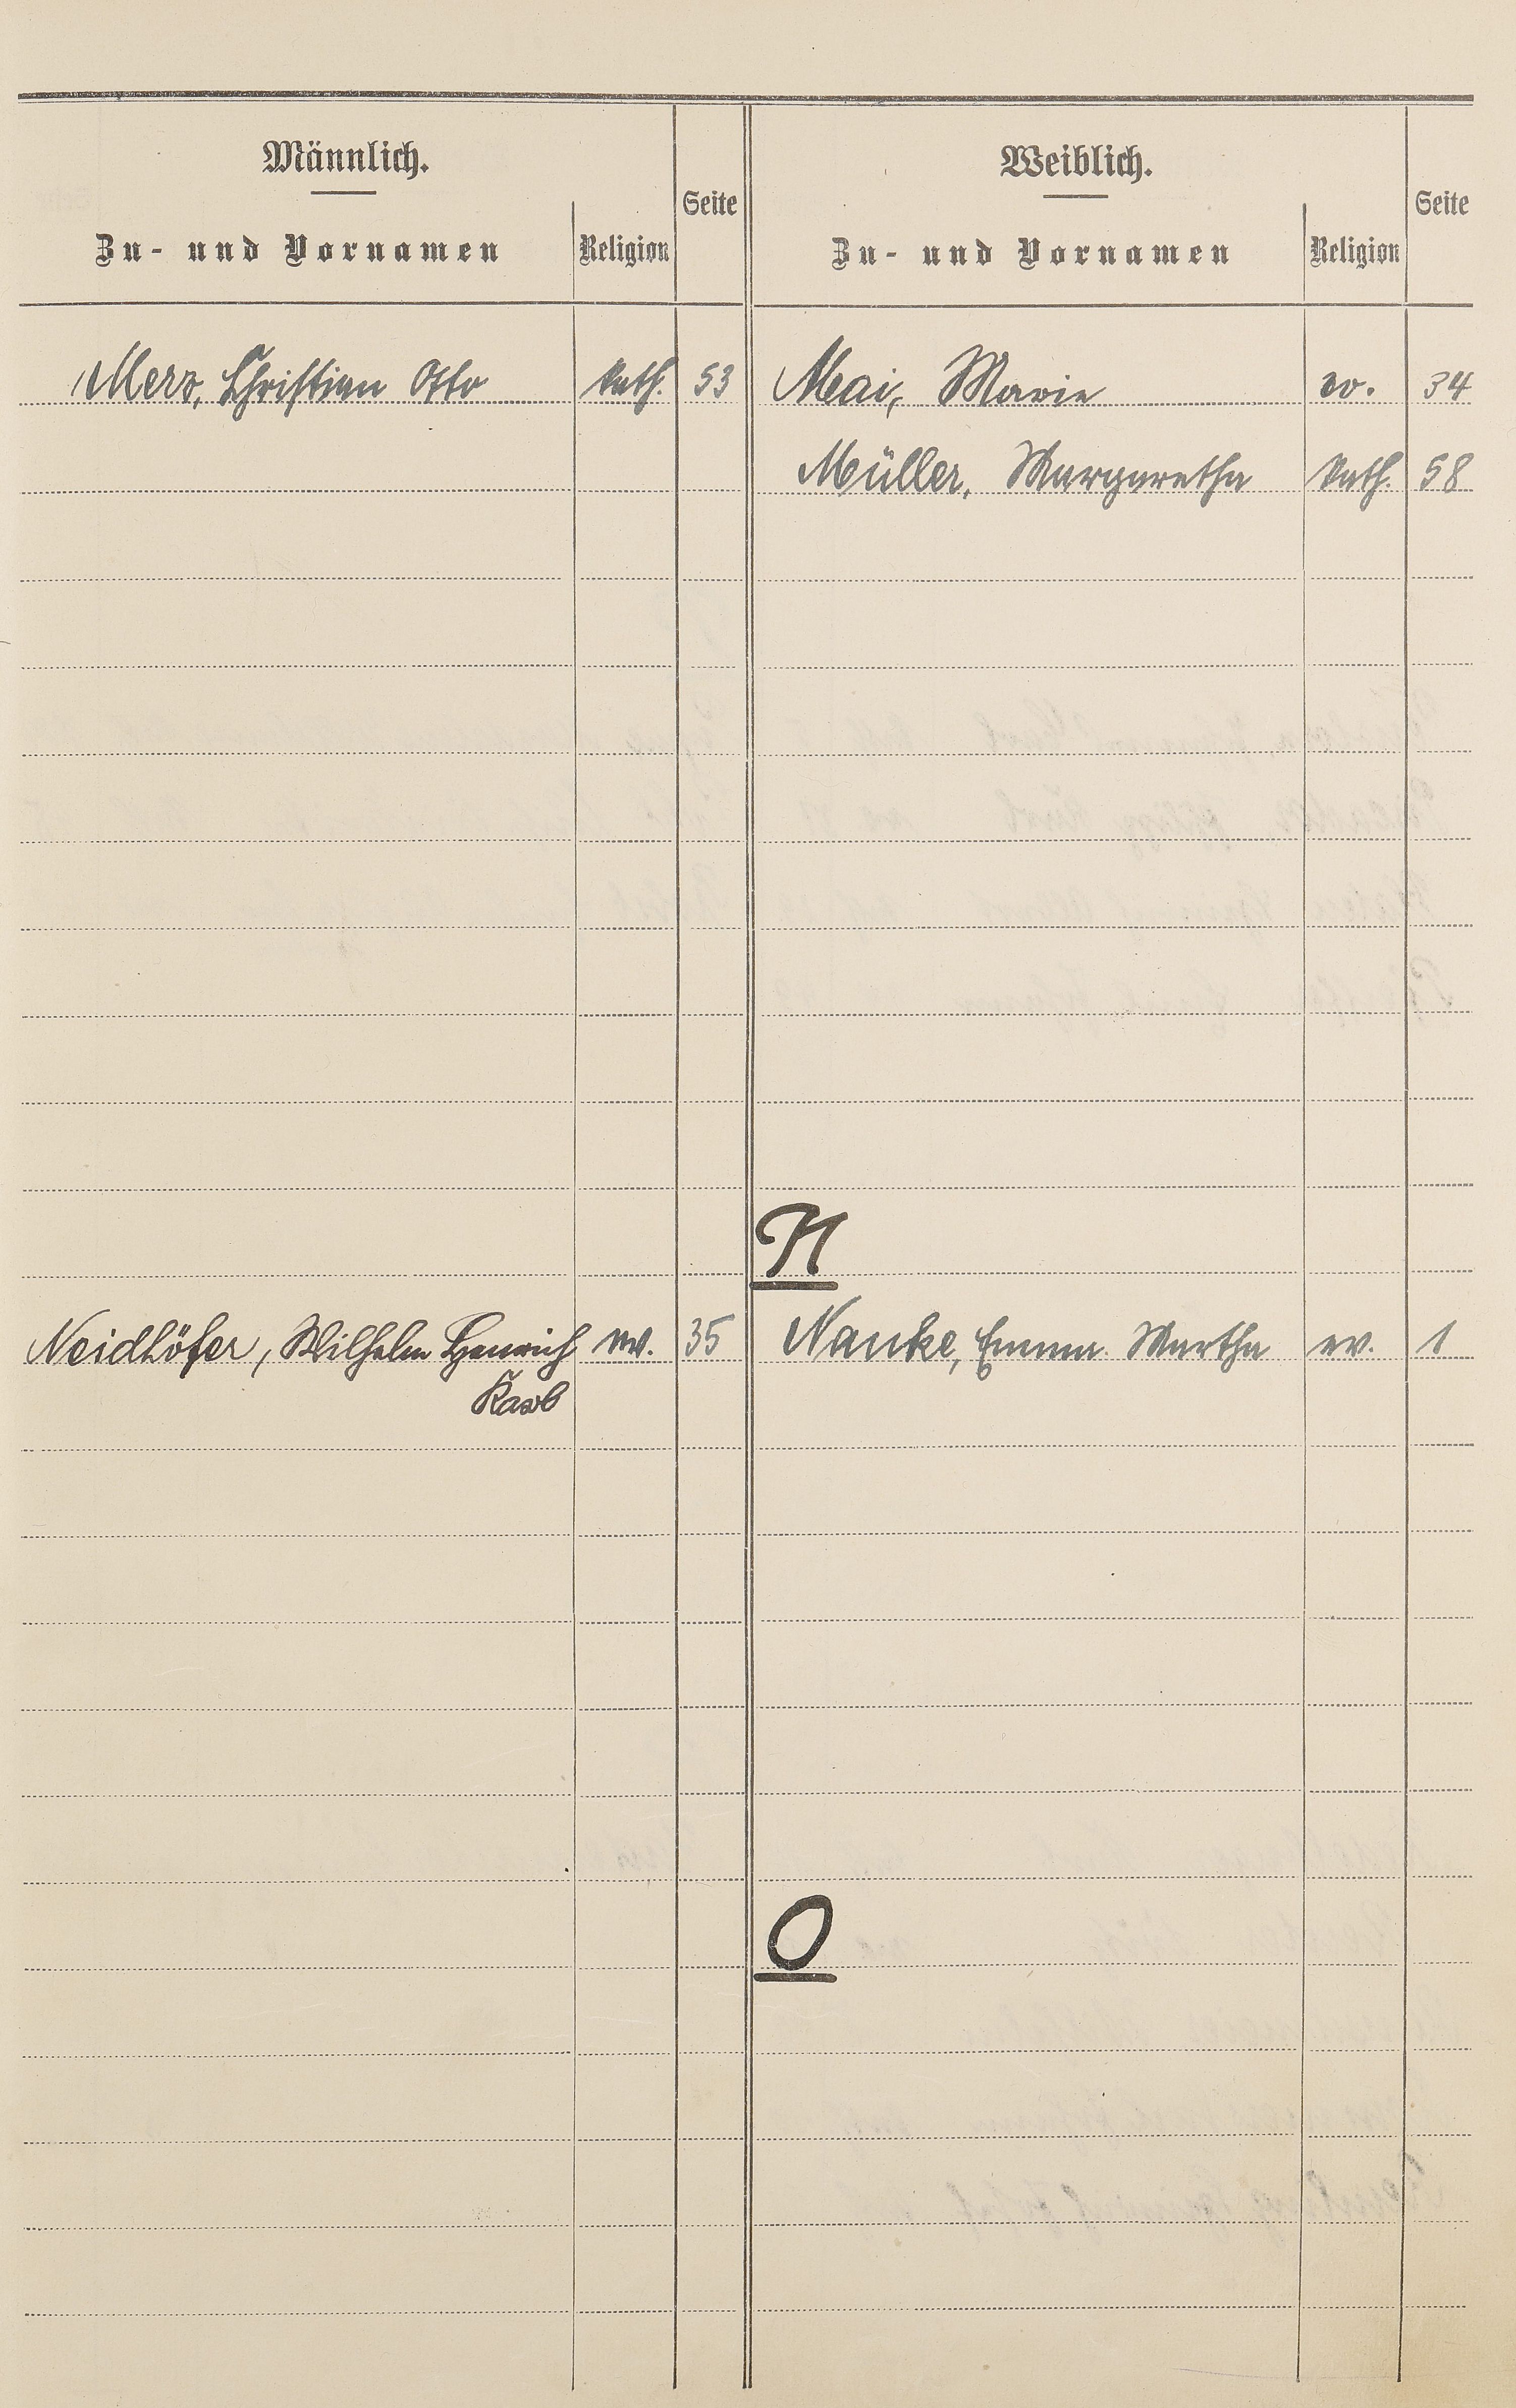 Männlich. Weiblich.
Seite Seite
Zu- und Vornamen Religion Zu- und Vornamen Religion
Merz, Christian Otto kath. 53 Mai, Marie ev. 34
Müller, Margaretha kath. 58
N
Neidhöfer, Wilhelm Heinrich ev. 35 Nanke, Emma Martha ev. 1
Karl
O